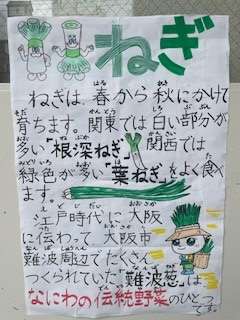 ねぎ
ねぎは、春から秋にかけて
育ちます。関東では白い部分が
多い"根深ねぎ"、関西では
緑色が多い"葉ねぎ"をよく食べ
ます。
江戸時代に大阪
に伝わって大阪市
難波周辺でたくさん
つくられていた"難波葱"は
なにわの伝統野菜のひとつ
です。